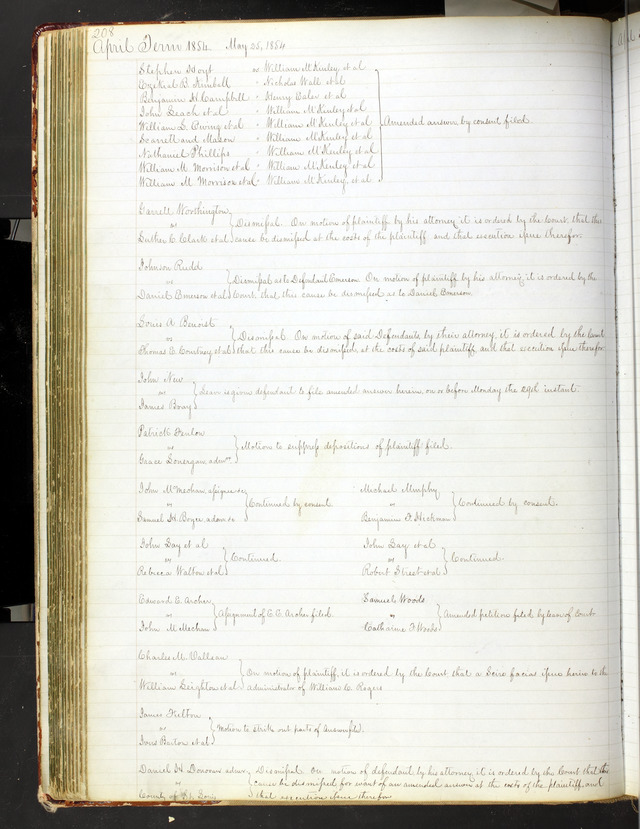 208
April Term 1854. May 25, 1854
Stephen Hoyt vs William McKinley et al
Ezekiel B. Kimball " Nicholas Wall et al
Benjamin H Campbell " Henry et al
John Leach et al " William McKinley et al
William L. Ewing et al " William McKinley et al } Amended answer by consent filed
and Mason " William McKinley et al
Nathaniel Phillips " William McKinley et al
William M. Morrison et al " William McKinley et al
William M. Morrison et al " William McKinley et al
Garrell Worthington
vs } Dismissal. On motion of plaintiff by his attorney it is ordered by the Court that this
Luther C. Clark et al cause be dismissed at the costs of the plaintiff and that execution issue therefor.
Johnson Rudd
vs } Dismissal as to Defendant Emerson. On motion of plaintiff by his attorney, it is ordered by the
Daniel Emerson et al Court that this cause be dismissed as to Daniel Emerson.
Louis A. Benoist
vs } Dismissal. On motion of said Defendants by their attorney, it is ordered by the Court
Thomas C. Courtney et al that this cause be dismissed at the costs of said plaintiff and that execution issue therefor
John New
vs } Leave is given defendant to file amended answer herein, on or before Monday the 29th instant.
James
Patrick
vs } Motion to suppress depositions of plaintiff filed.
Grace Lonergan admr
John McMechan, assignee &c
vs } Continued by consent
Samuel H. Boyce admr &c
Michael Murphy
vs } Continued by consent.
Benjamin F. Hickman
John Day et al
vs } Continued.
Rebecca Walton et al
John Day et al
vs } Continued.
Robert Street et al
Edward C. Archer
vs } Assignment of E C. Archer filed.
John McMechan
Samuel Woods
vs } Amended petition filed by leave of Court.
Catharine F. Woods
Charles M. Valleau
vs } On motion of plaintiff, it is ordered by the Court that a Scire facias issue herein to the
William Leighton et al administrator of William C. Rogers
James Felton
vs } Motion to strike out parts of Answer filed.
et al
Daniel H. Donovan admr } Dismissal. On motion of defendant by his attorney, it is ordered by the Court that this
vs cause be dismissed for want of an amended answer at the costs of the plaintiff, and
County of St. Louis that execution issue therefor